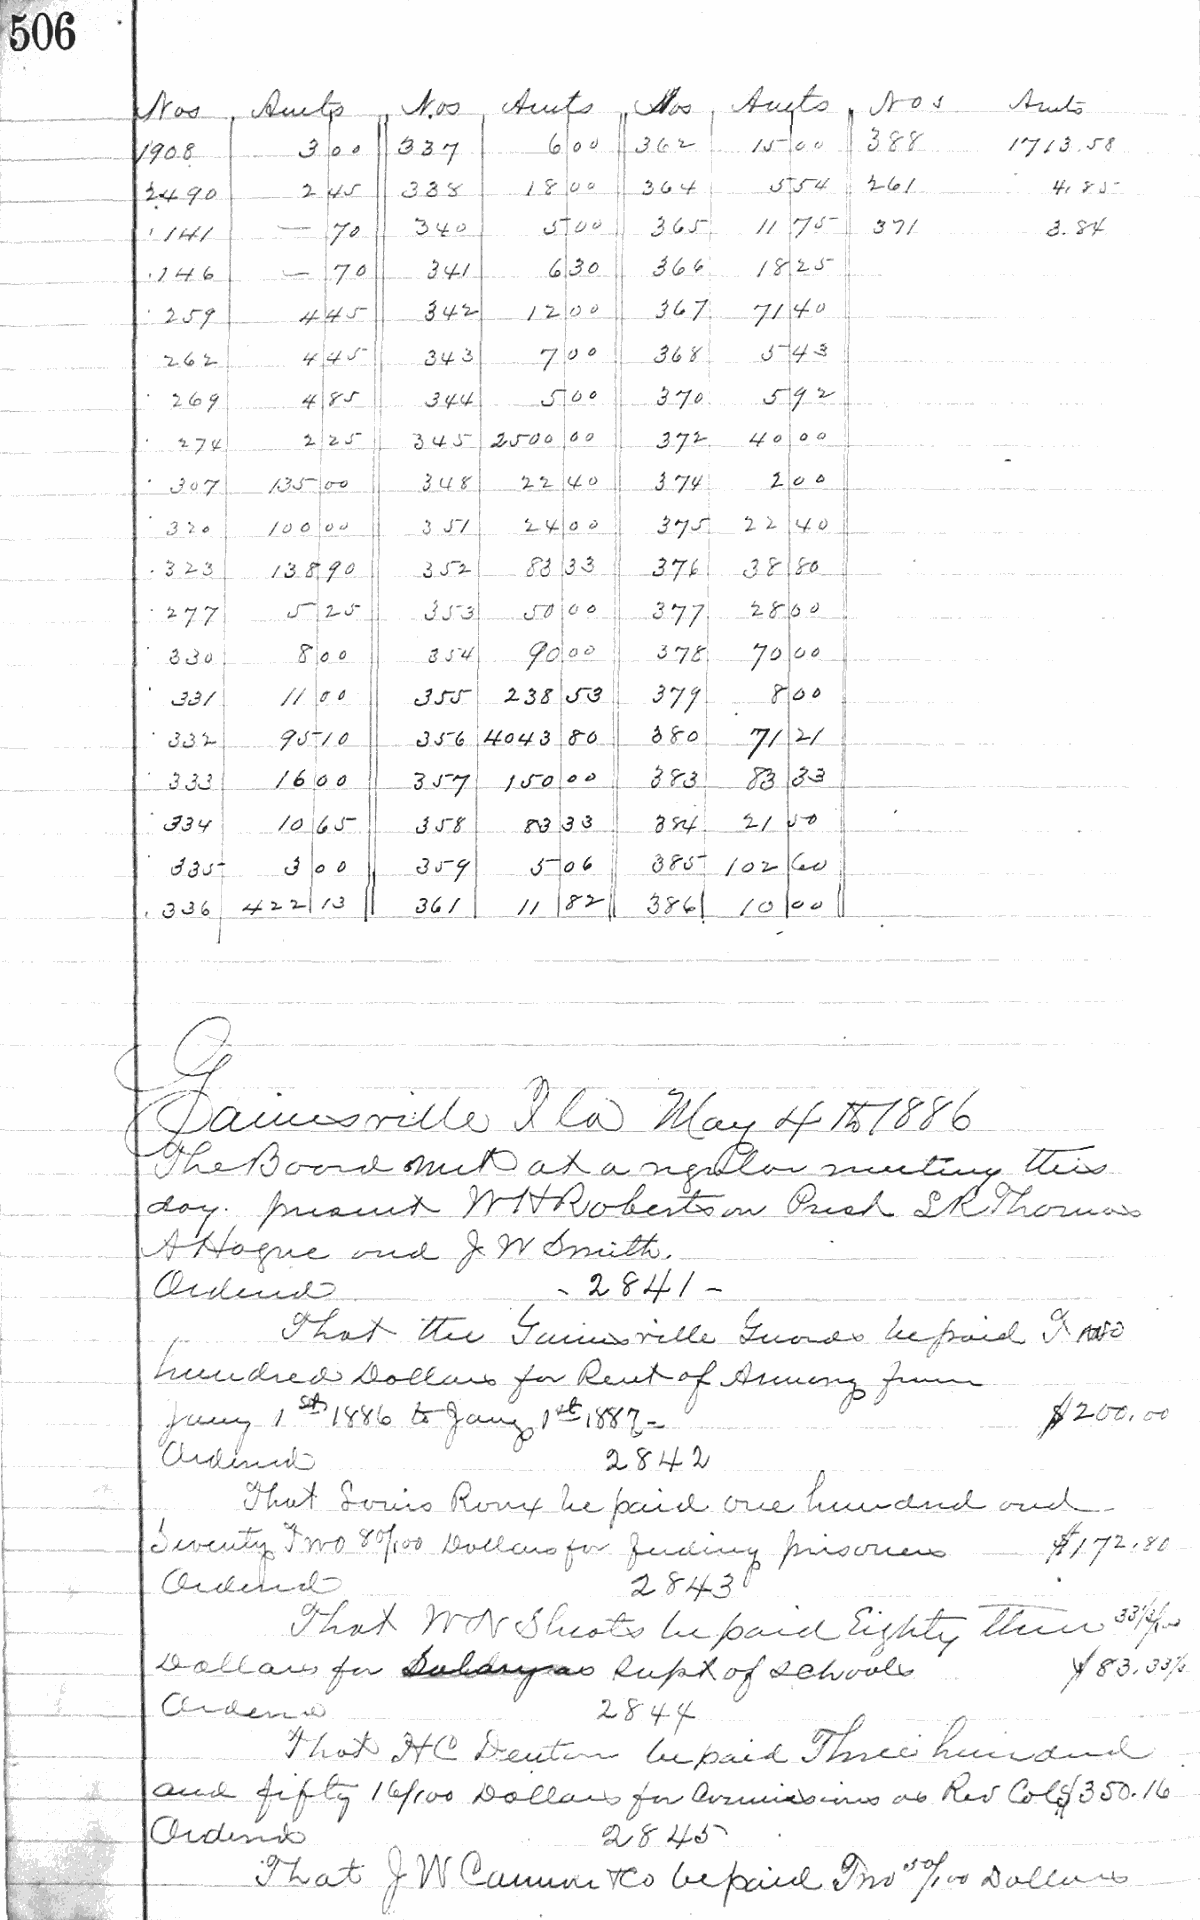 506
Nos Amts Nos Amts Nos Amts Nos Amts
1908 3 00 337 6 00 362 15 00 388 1713.58
2490 2 45 338 18 00 364 5 54 261 4.85
141 — 70 340 5 00 365 11 75 371 3.84
146 — 70 341 6 30 366 18 25
259 4 45 342 12 00 367 71 40
262 4 45 343 7 00 368 5 43
269 4 85 344 5 00 370 5 92
274 2 25 345 2500 00 372 40 00
307 135 00 348 22 40 374 2 00
320 100 00 351 24 00 375 22 40
323 138 90 352 83 33 376 38 80
277 5 25 353 50 00 377 28 00
330 8 00 354 90 00 378 70 00
331 11 00 355 238 53 379 8 00
332 95 10 356 4043 80 380 71 21
333 16 00 357 150 00 383 83 33
334 10 65 358 83 33 384 21 50
335 3 00 359 5 06 385 102 60
336 422 13 361 11 82 386 10 00
Gainesville Fla May 4th 1886
The Board met at a regular meeting this
day. present W H Robertson Presd S K Thomas
A Hogue and J W Smith.
Ordered - 2841 -
That the Gainesville Guards be paid Two
hundred Dollars for Rent of Armory from
Jany 1st 1886 to Jany 1st 1887 - $200.00
Ordered 2842
That Louis Roux be paid one hundred and
Seventy Two 80/100 Dollars for feeding prisoners $172.80
Ordered 2843
That W N Sheats be paid Eighty three 33 1/3/100
Dollars for Salary as Supt of Schools $83.33 1/3
Ordered 2844
That H C Denton be paid Three hundred
and fifty 16/100 Dollars for Commissions as Rev Col $350.16
Ordered 2845
That J W Cannon & Co be paid Two 50/100 Dollars